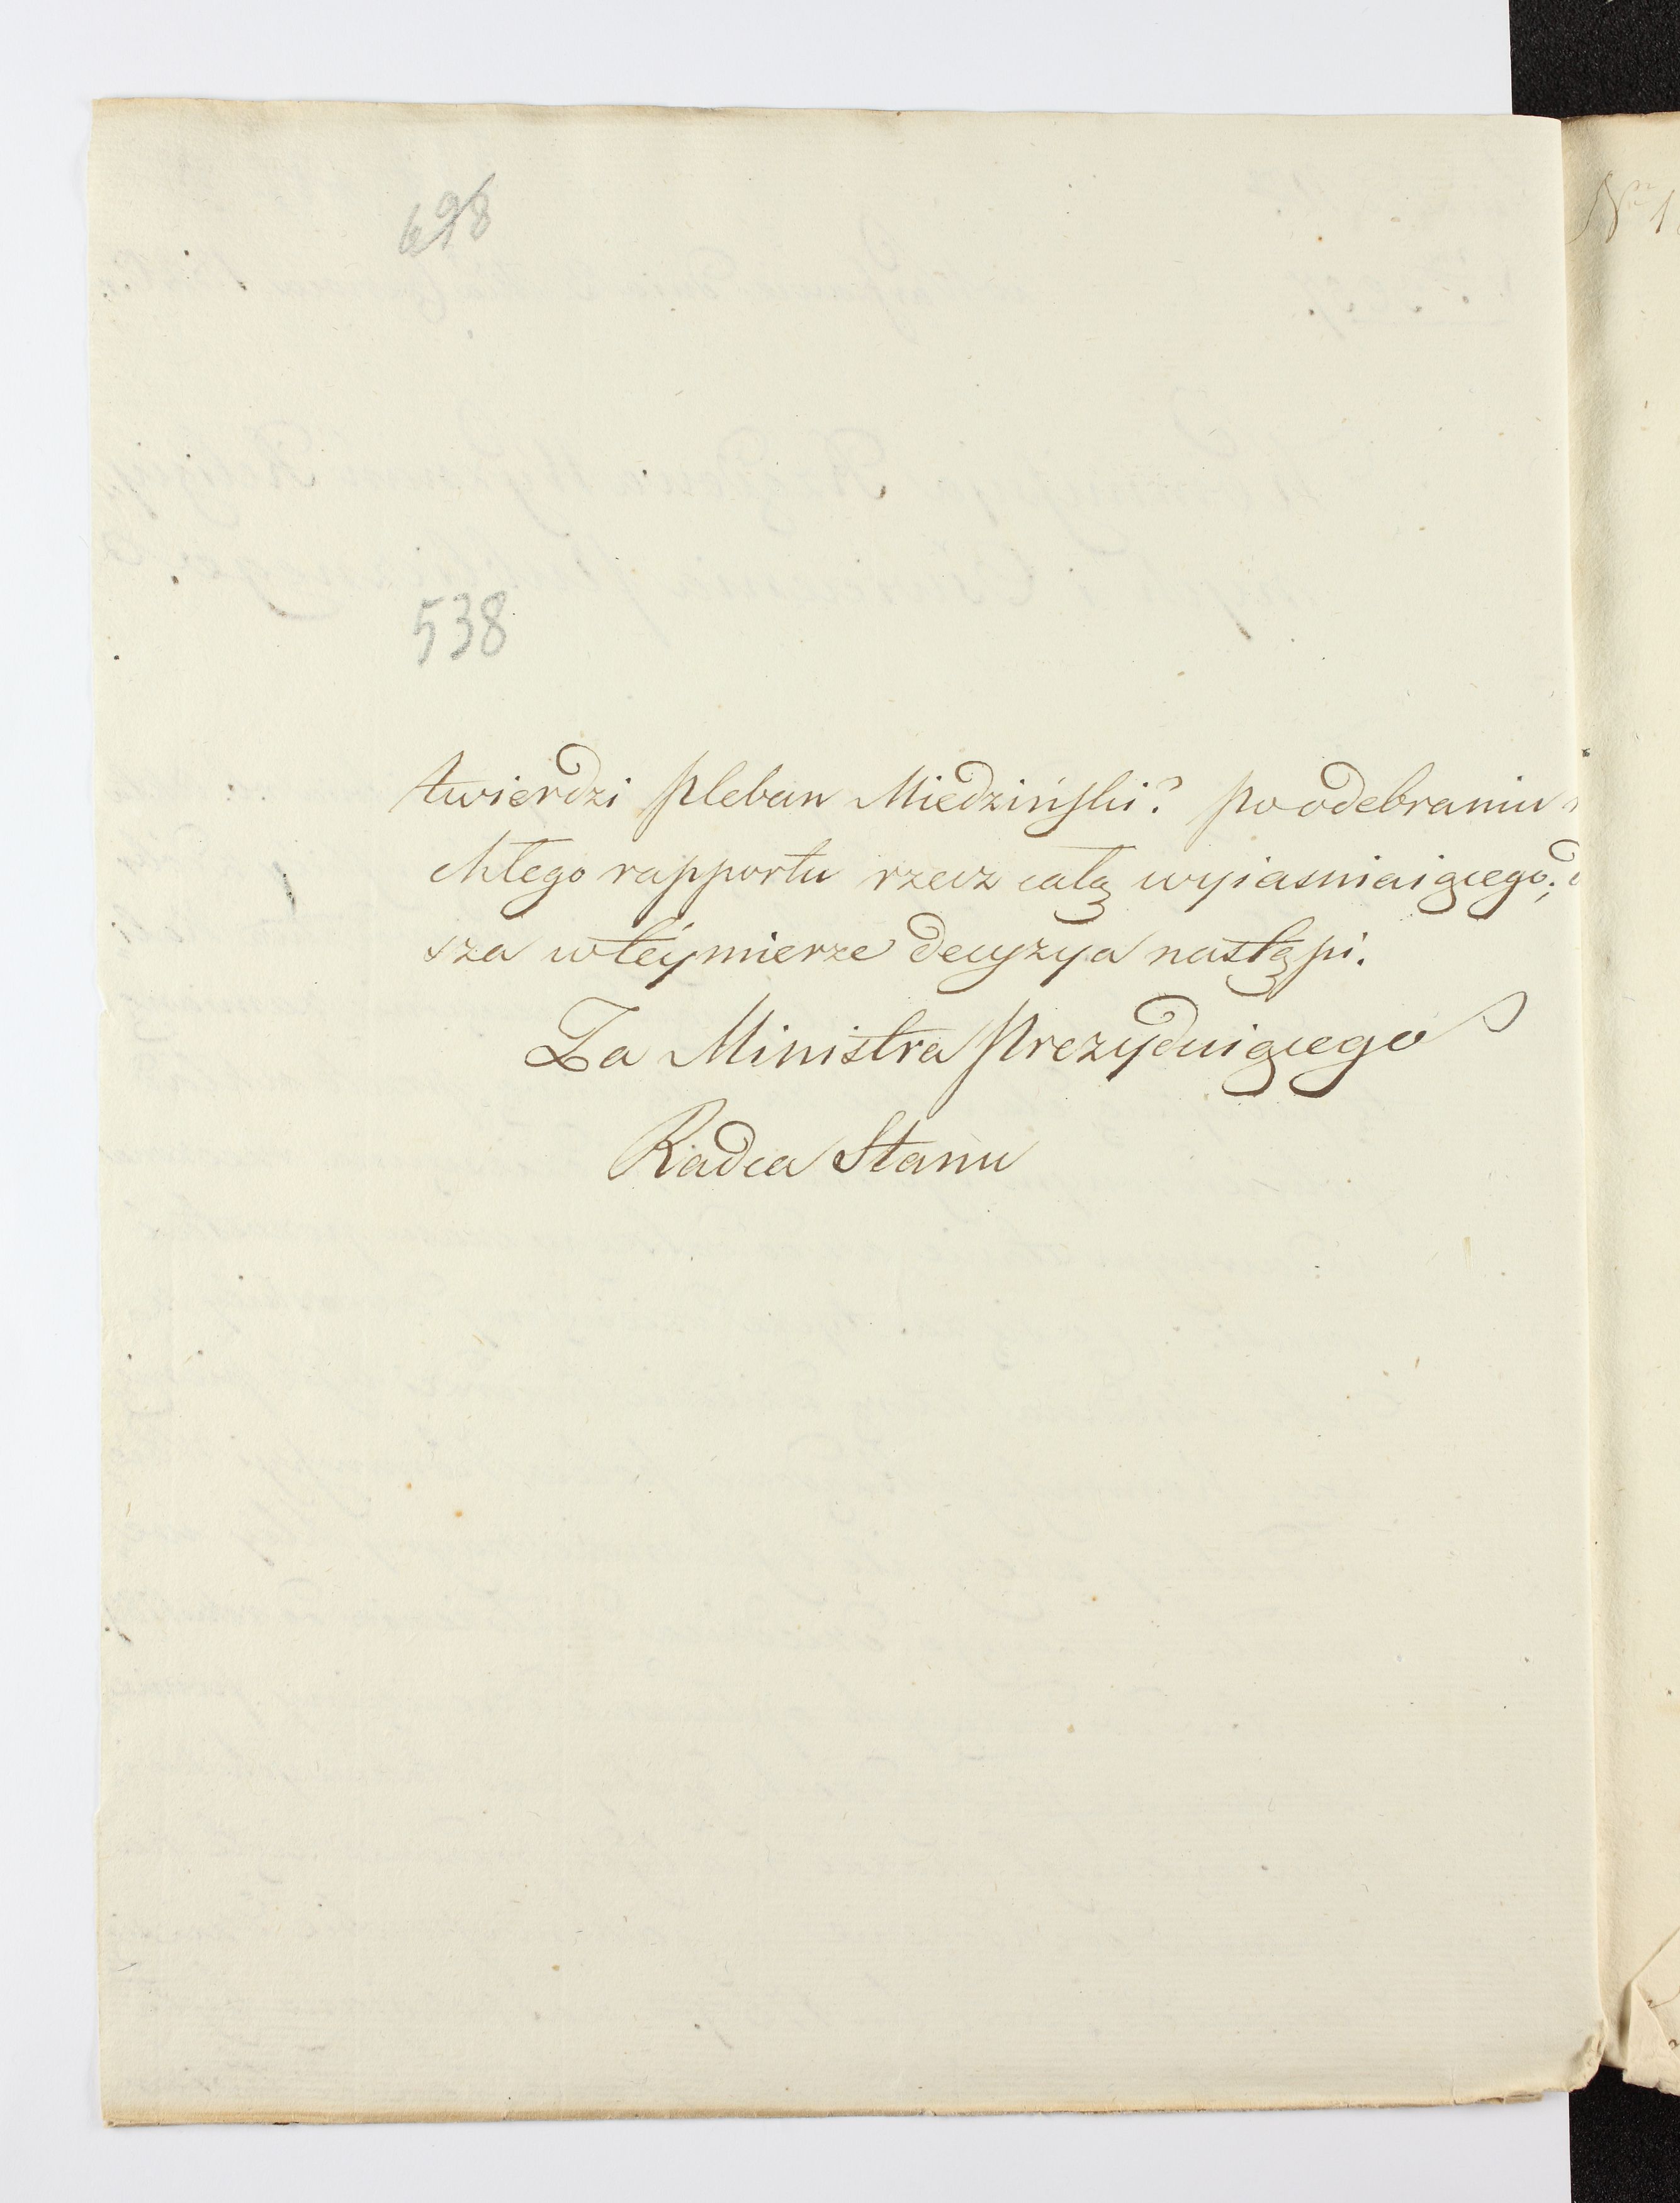 698
538
twierdzi pleban Miedziński? po odebraniu
chłego rapportu rzecz całą wyiasniaiącego;
sza w téy mierze decyzya nastąpi.
Za Ministra Prezyduiącego
Radca Stanu